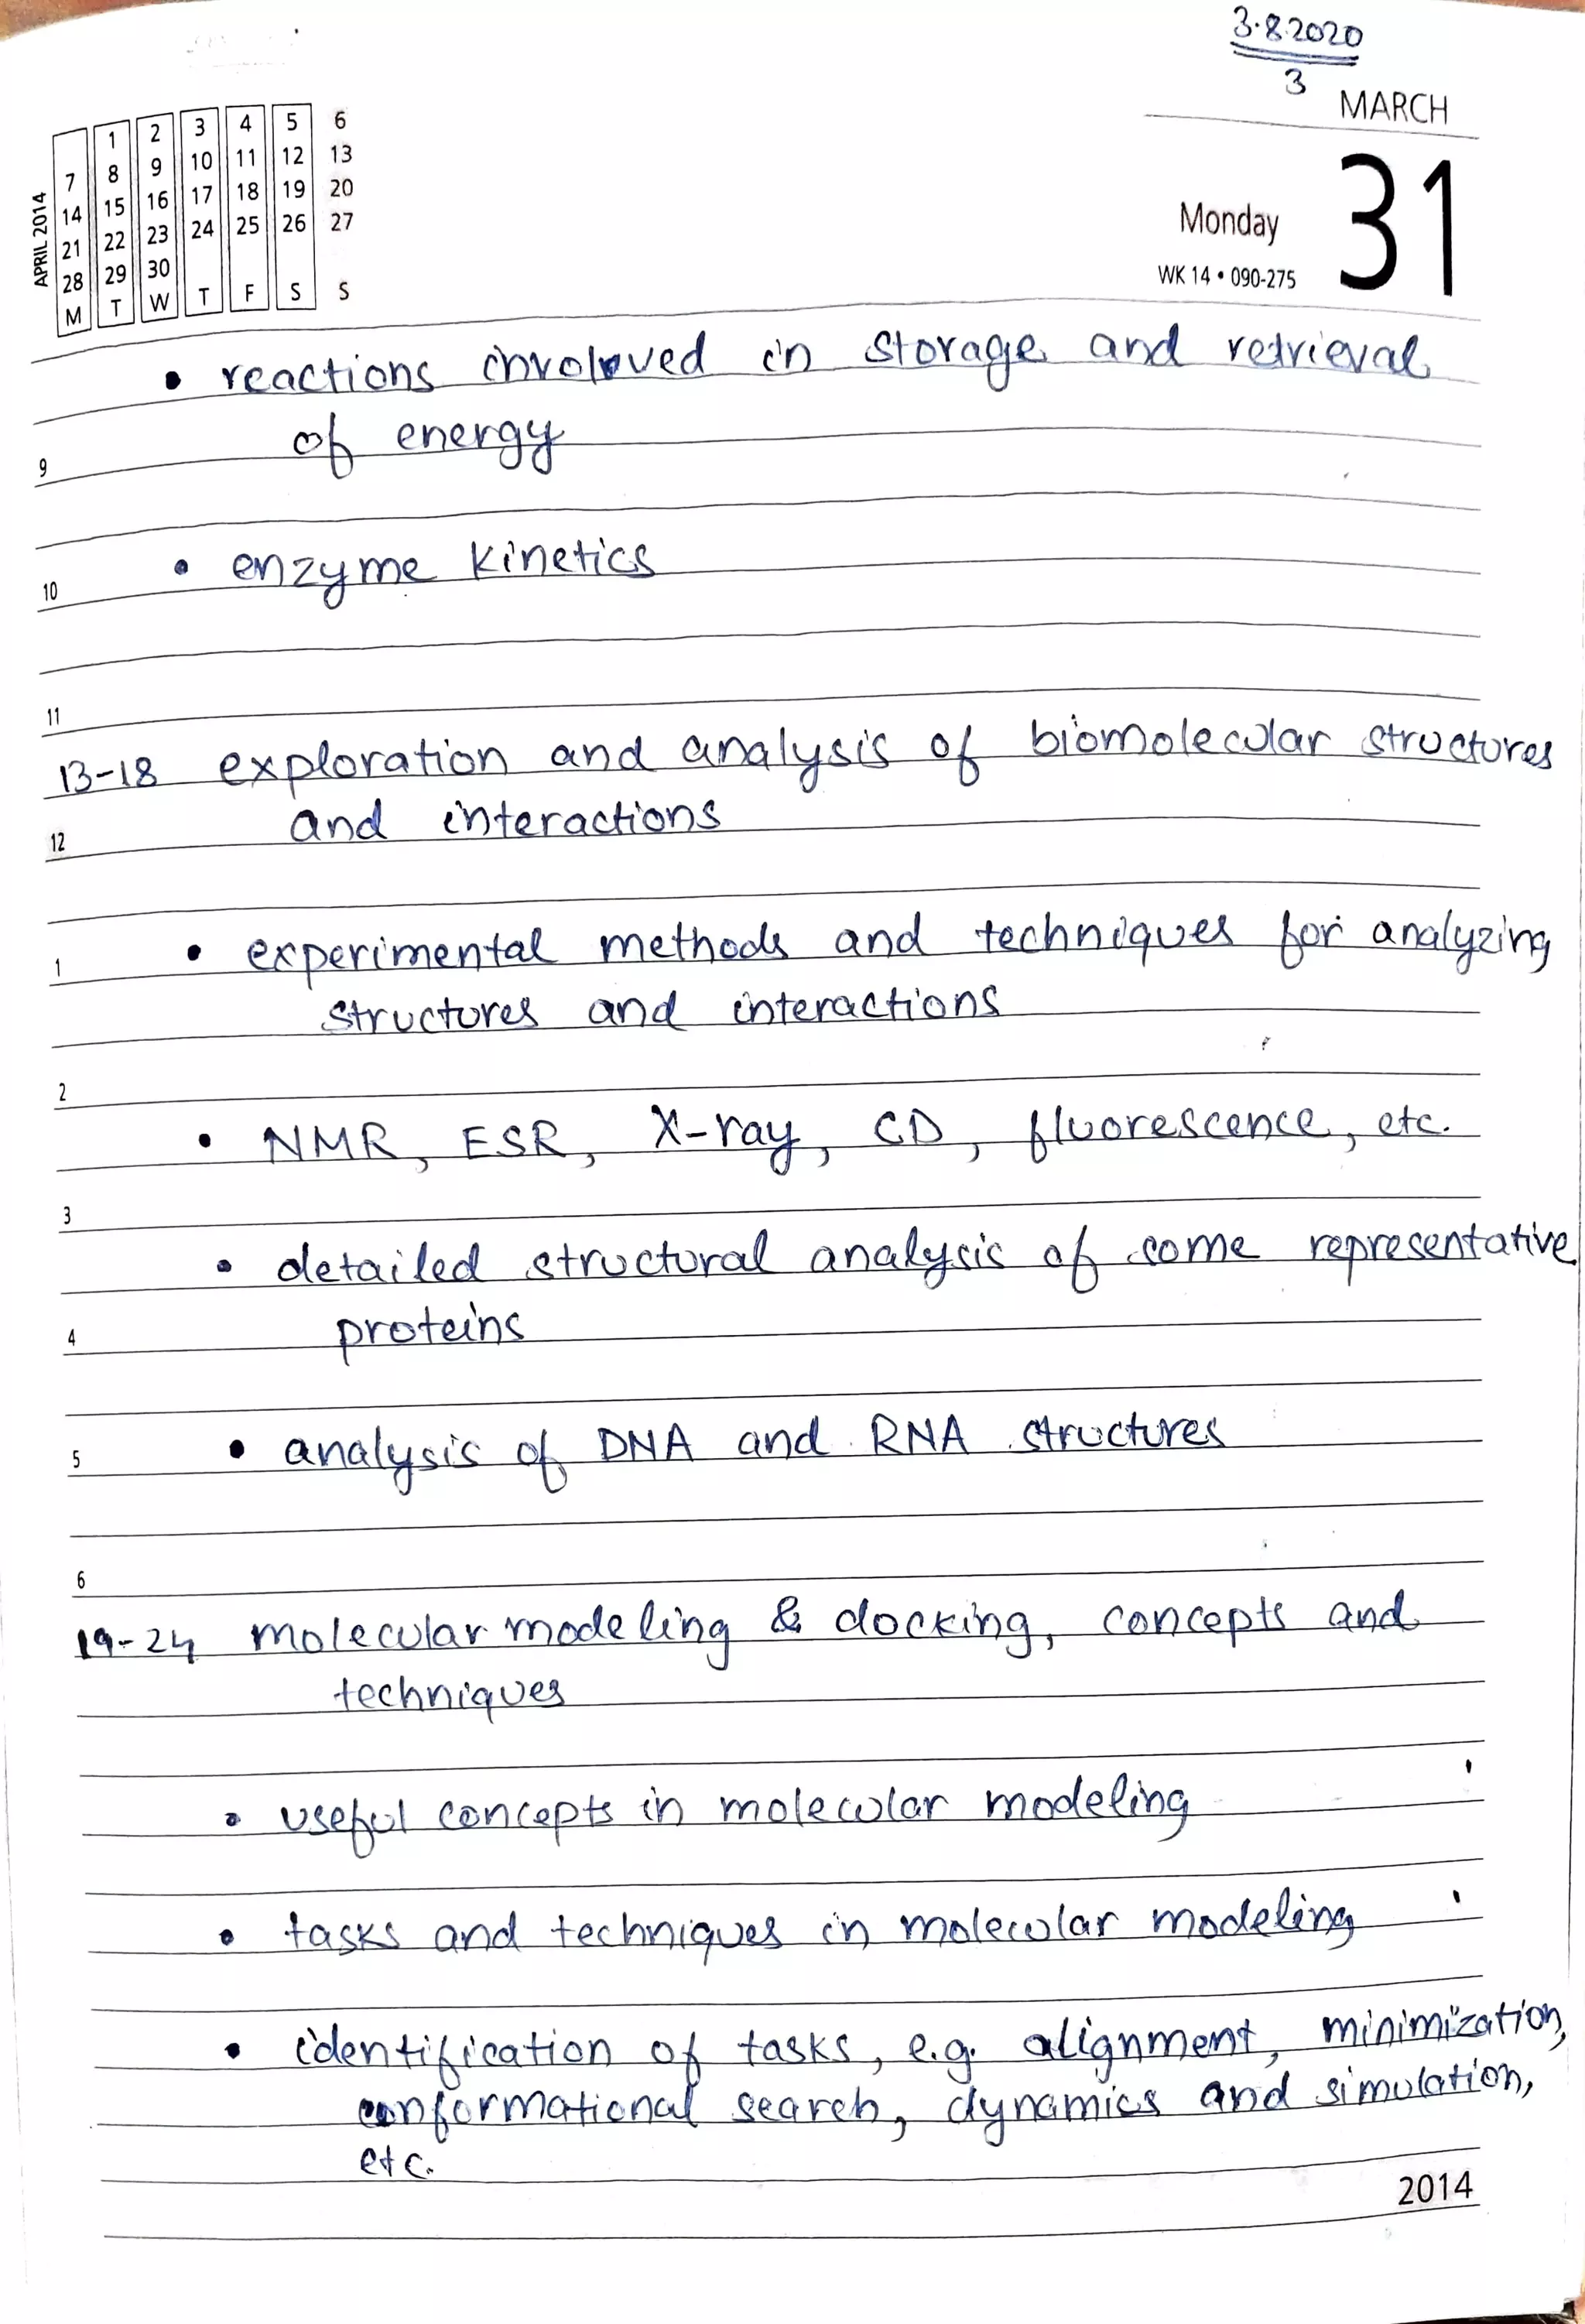 3.8.2020
3
MARCH
31
Monday
WK 14 • 090-275
APRIL 2014
1 2 3 4 5 6
7 8 9 10 11 12 13
14 15 16 17 18 19 20
21 22 23 24 25 26 27
28 29 30
M T W T F S S
• reactions involoved in storage and retrieval
of energy
9
• enzyme kinetics
10
11
13-18 exploration and analysis of biomolecular structures
and interactions
12
• experimental methods and techniques for analyzing
1
structures and interactions
2
• NMR, ESR, X-ray, CD, fluorescence, etc.
3
• detailed structural analysis of some representative
proteins
4
• analysis of DNA and RNA structures
5
6
19-24 molecular modeling & docking, concepts and
techniques
• useful concepts in molecular modeling
• tasks and techniques in molecular modeling
• identification of tasks, e.g. alignment, minimization,
conformational search, dynamics and simulation,
etc.
2014